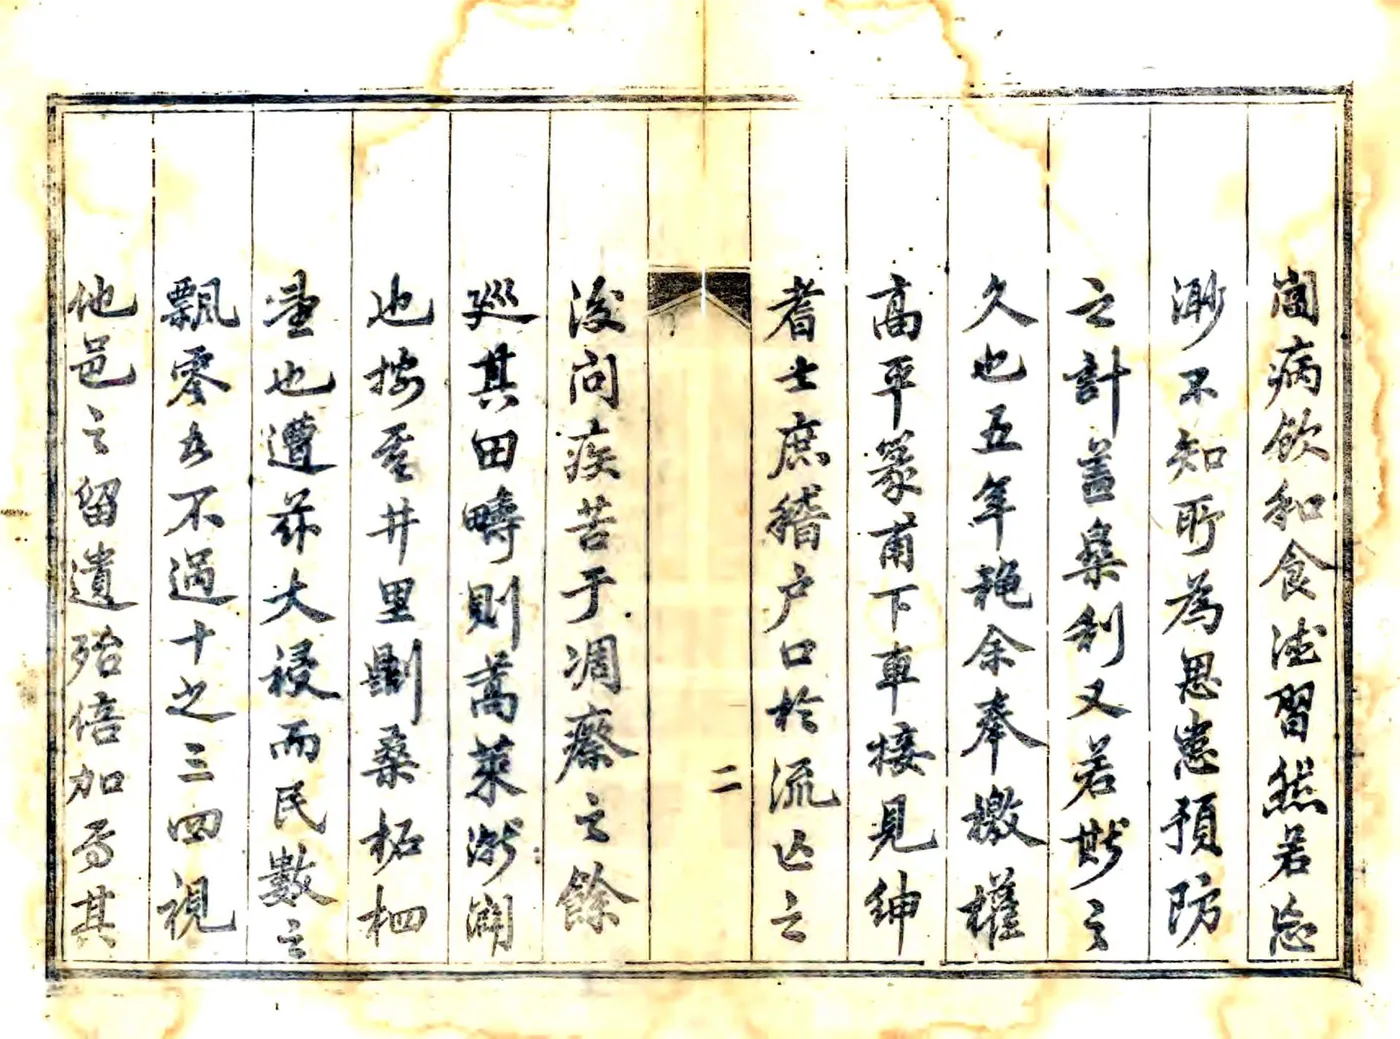 病飲和食德習然若忘
渺不知所為思患預防
之計盖利又若斯之
久也五年余奉檄權
高平篆甫下車接見紳
耆士庶稽户口於流亡之
二
後問疾苦于凋瘵之餘
廵其田疇則蒿萊澌澗
也按至井里則桑柘
也遭兹大祲而民數之
飄零去不過十之三四視
他邑之留遺殆倍加焉其